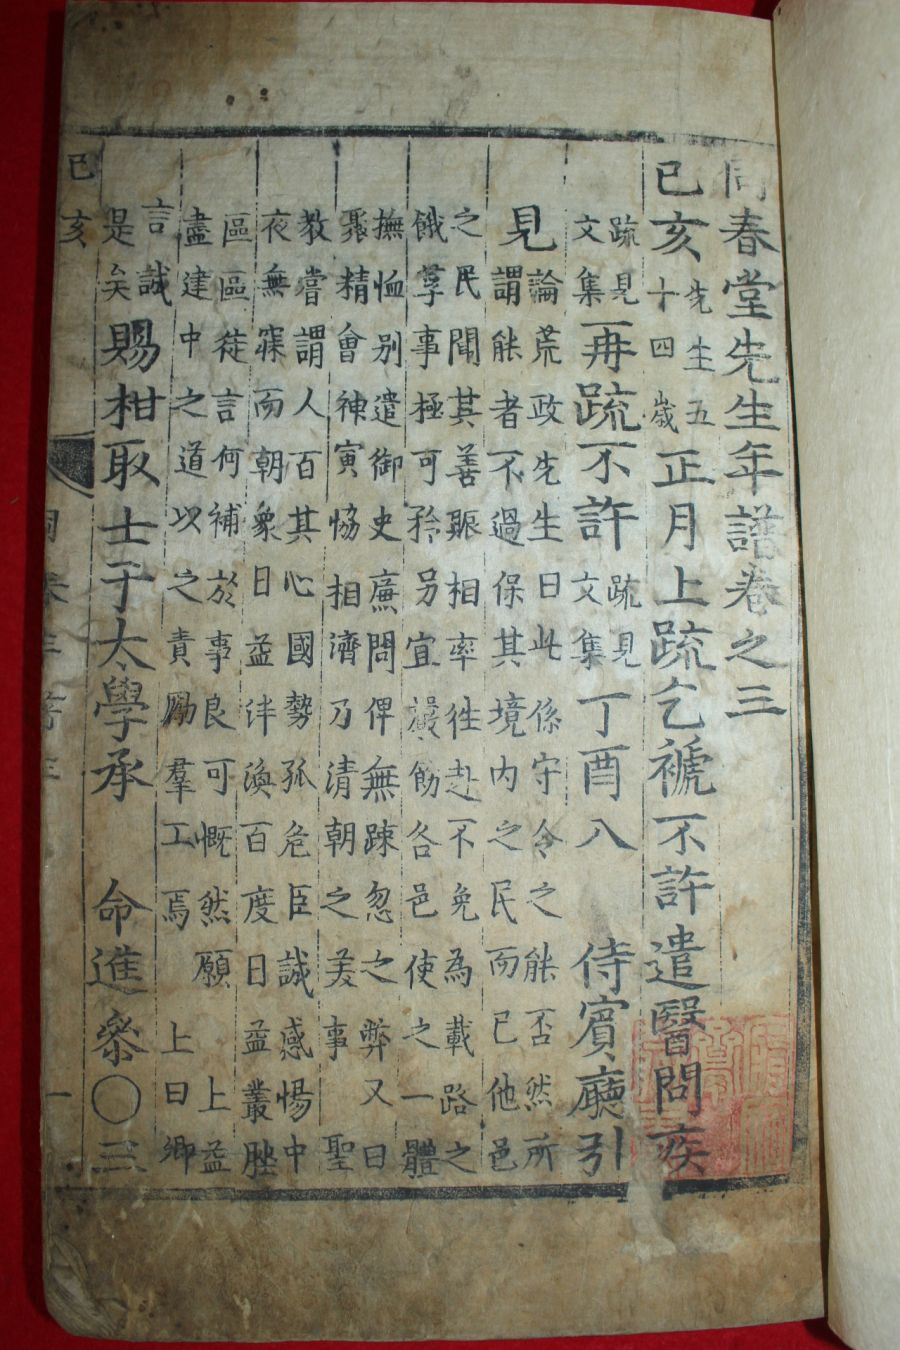 同春堂先生年譜卷之三
己亥先生五十四歲正月上疏乞褫不許遣醫問疾
疏見文集再疏不許疏見文集丁酉入 侍賓廳引
見論荒政先生曰此係守令之能否然所
謂能者不過保其境内之民而已他邑
之民聞其善賑相率徃赴不免為載路之
餓莩事極可矜另宜嚴飭各邑使之一體
撫恤别遣御史廉問俾無踈忽之弊又曰
聚精會神寅恊相濟乃清朝之美事 聖
教嘗謂人百其心國勢孤危臣誠感惕中
夜無寐而朝象日益泮渙百度日益叢脞
區區徒言何補於事良可慨然願 上益
盡建中之道以之責勵羣工焉 上曰卿
言誠是矣賜柑取士于太學承 命進參〇三
己亥